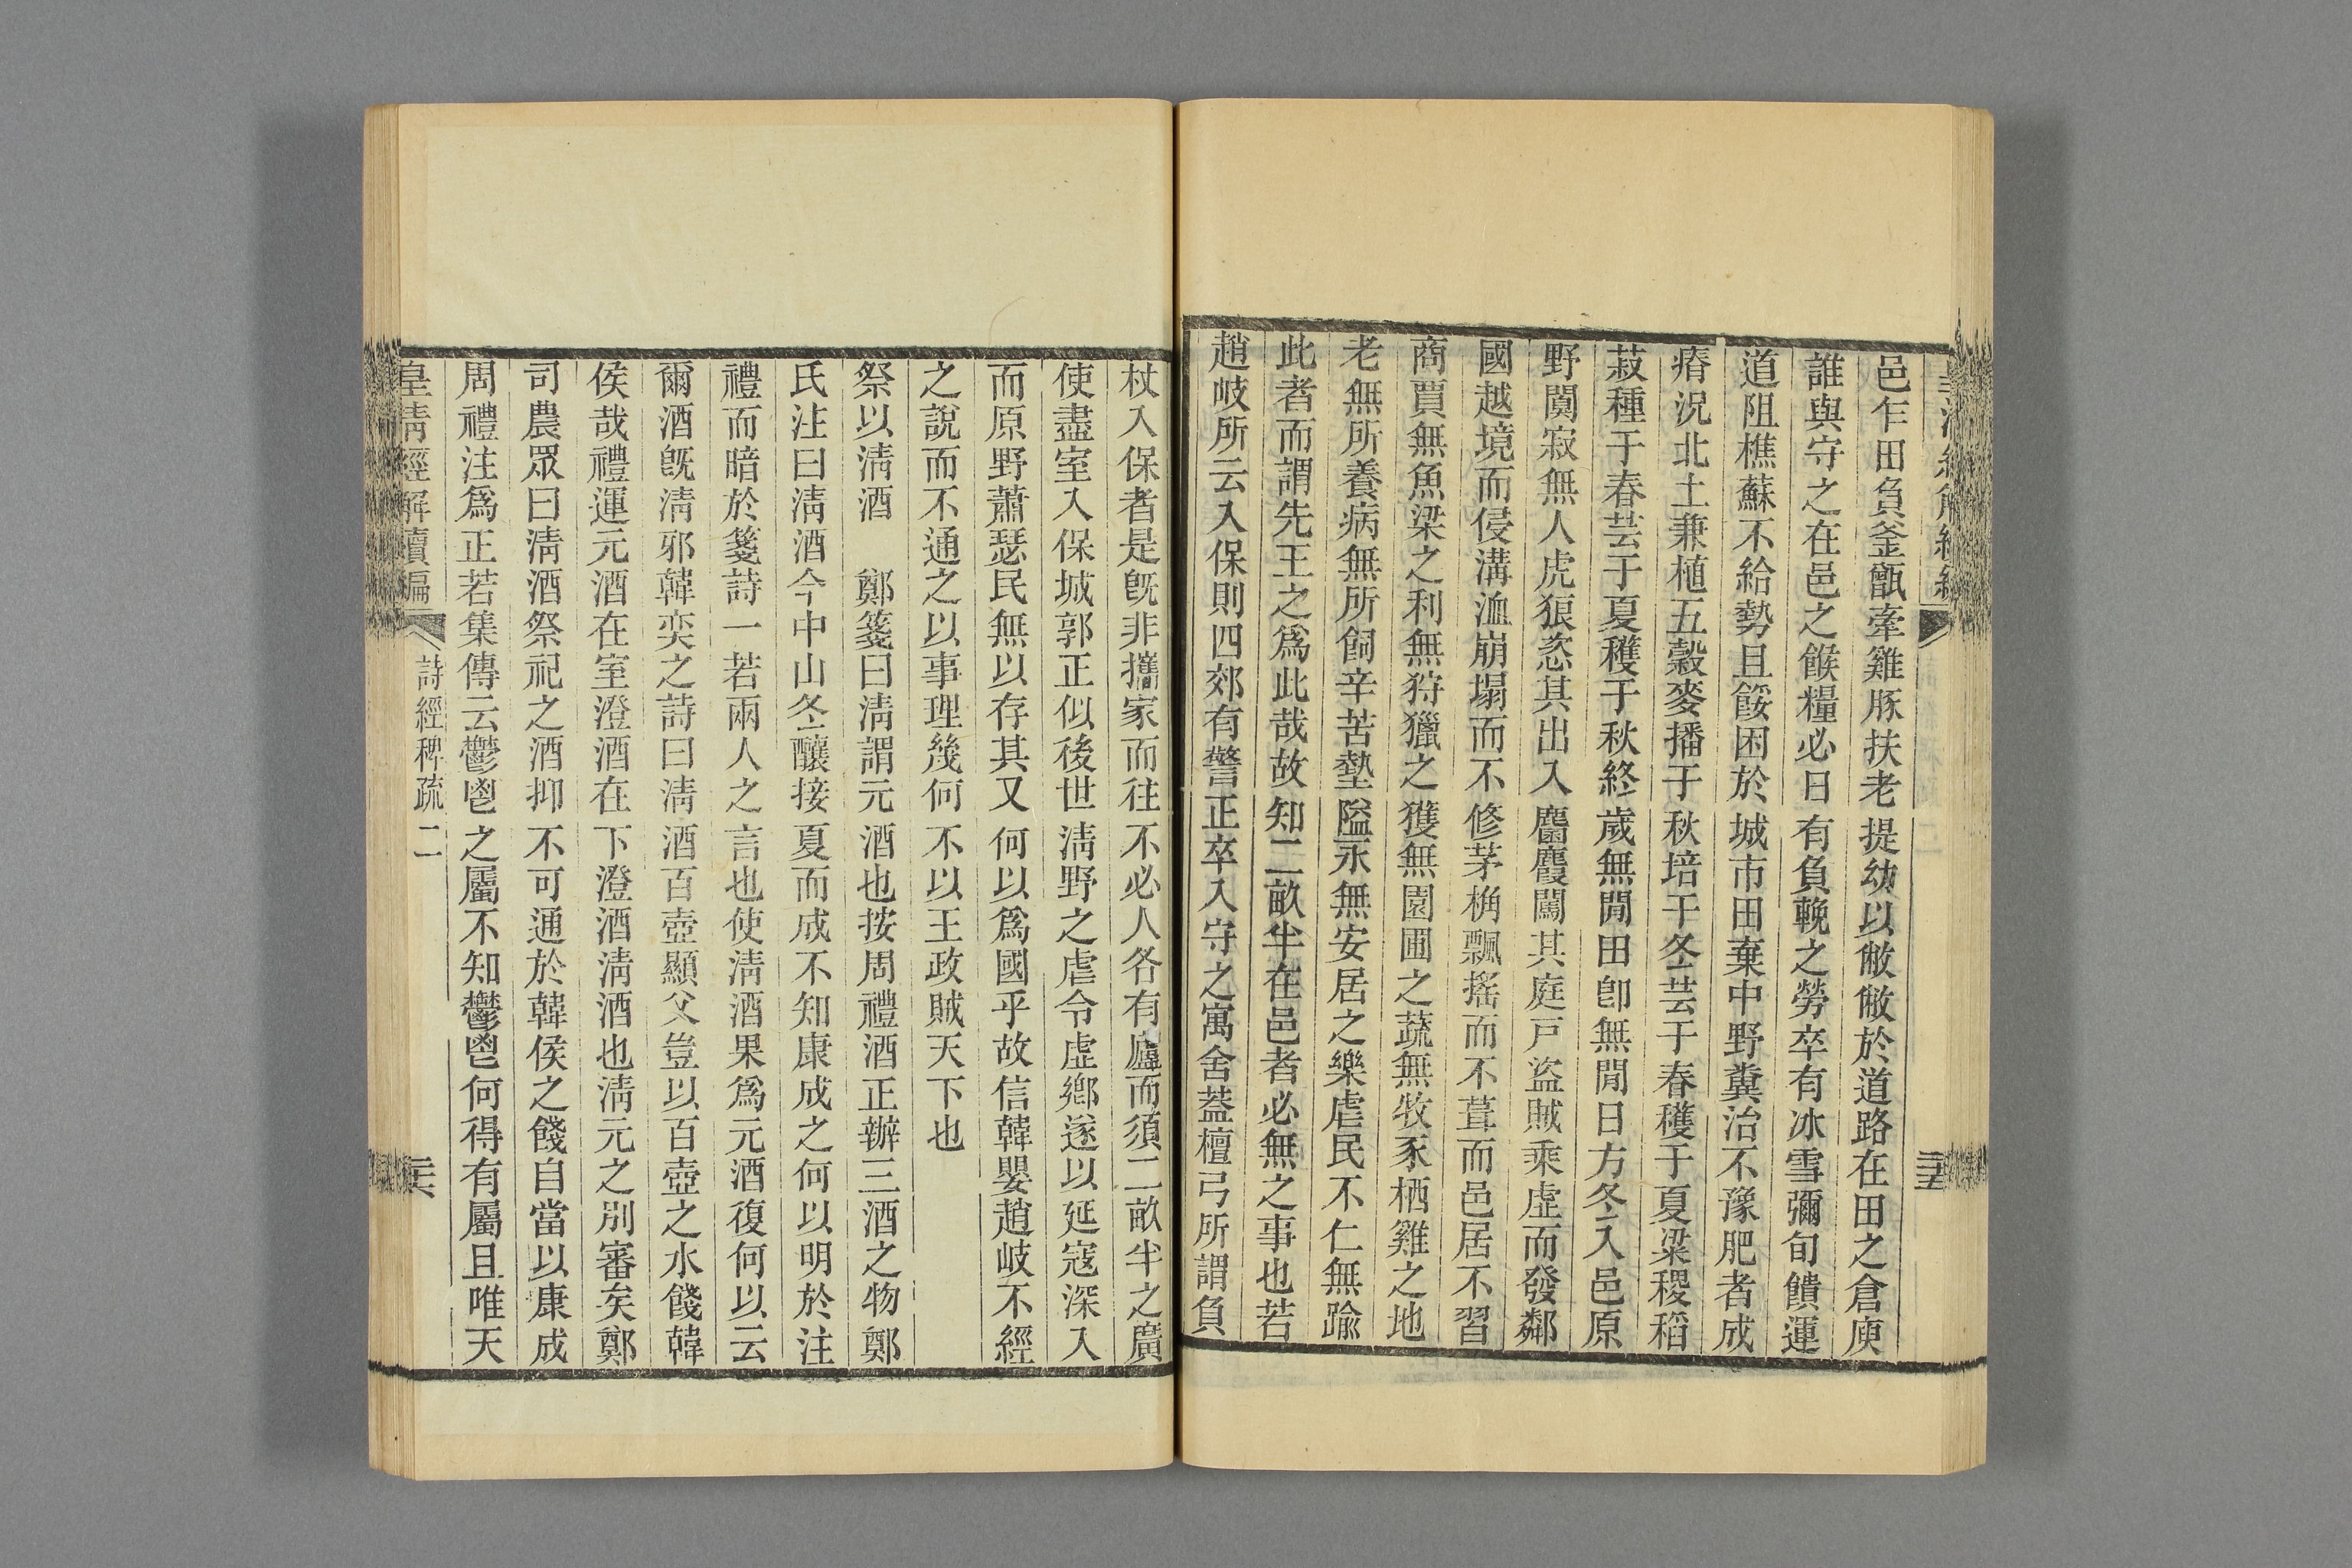 邑乍田負釜甑牽雞豚扶老提幼以敝敝於道路在田之倉庾
誰與守之在邑之餱糧必日有負輓之勞卒有冰雪彌旬饋運
道阻樵蘇不給勢且餒困於城市田棄中野糞治不豫肥者成
瘠況北土兼植五穀麥播于秋培于冬芸于春穫于夏粱稷稻
菽種于春芸于夏穫于秋終歲無閒田卽無閒日方冬入邑原
野闃寂無人虎狼恣其出入麕麚闖其庭戸盜賊乘虛而發鄰
國越境而侵溝洫崩塌而不修茅桷飄搖而不葺而邑居不習
商賈無魚梁之利無狩獵之獲無園圃之蔬無牧豕栖雞之地
老無所養病無所飼辛苦墊隘永無安居之樂虐民不仁無踰
此者而謂先王之爲此哉故知二畝半在邑者必無之事也若
趙岐所云入保則四郊有警正卒入守之寓舍葢檀弓所謂負
杖入保者是旣非攜家而往不必人各有廬而須二畝半之廣
使盡室入保城郭正似後世淸野之虐令虛鄕遂以延寇深入
而原野蕭瑟民無以存其又何以爲國乎故信韓嬰趙岐不經
之說而不通之以事理幾何不以王政賊天下也
祭以淸酒　鄭箋曰淸謂元酒也按周禮酒正辦三酒之物鄭
氏注曰淸酒今中山冬釀接夏而成不知康成之何以明於注
禮而暗於箋詩一若兩人之言也使淸酒果爲元酒復何以云
爾酒旣淸邪韓奕之詩曰淸酒百壺顯父豈以百壺之水餞韓
侯哉禮運元酒在室澄酒在下澄酒淸酒也淸元之別審矣鄭
司農眾曰淸酒祭祀之酒抑不可通於韓侯之餞自當以康成
周禮注爲正若集傳云鬱鬯之屬不知鬱鬯何得有屬且唯天
皇淸經解續編
詩經稗疏二